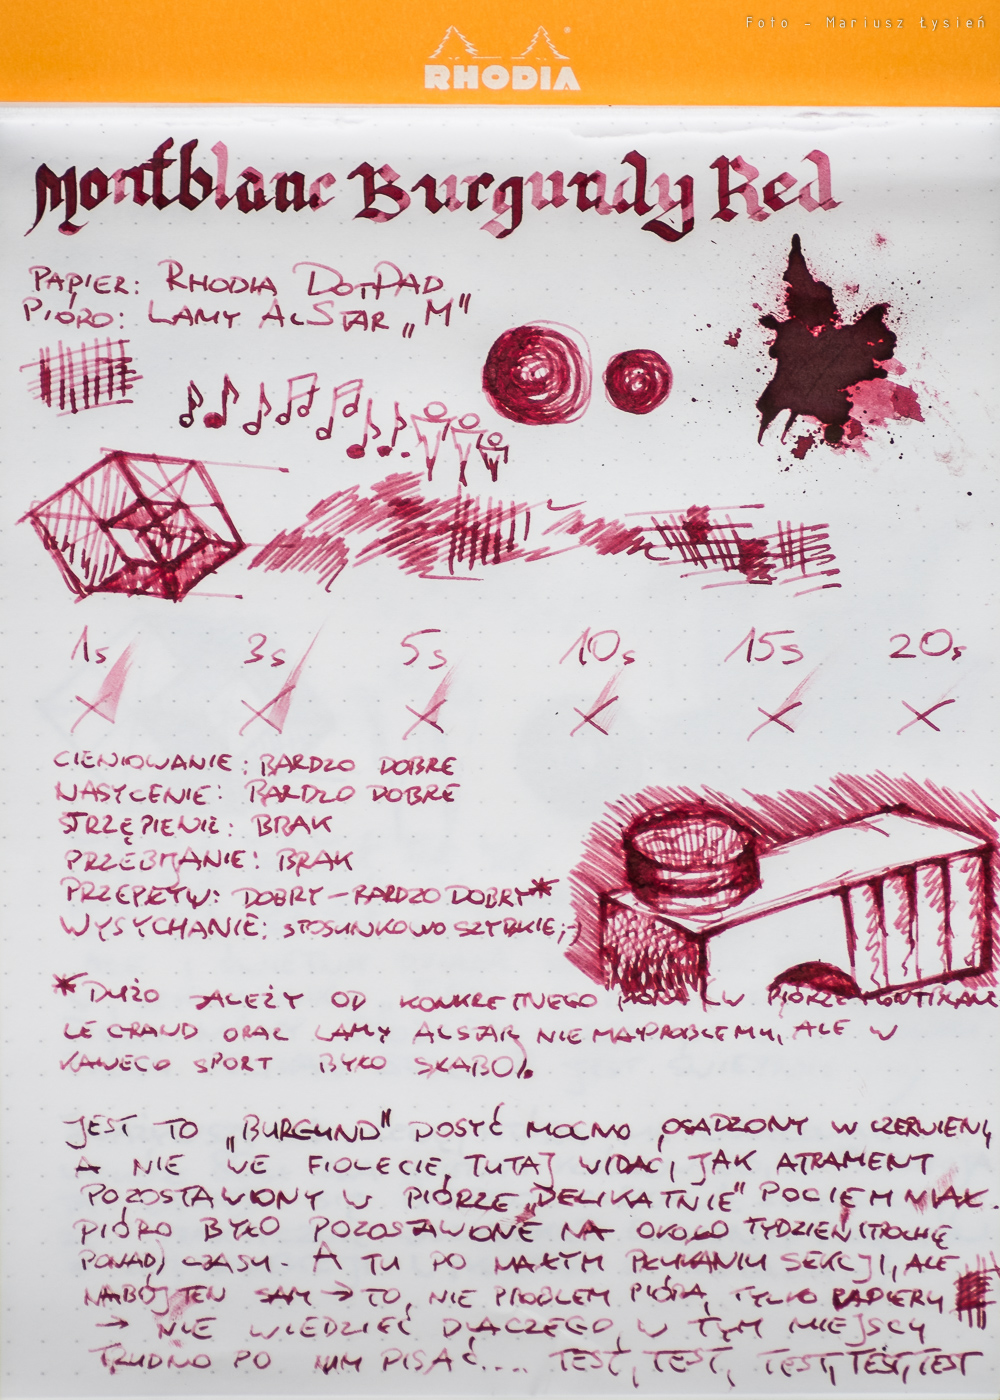 Foto - Mariusz Łysień
RHODIA
Montblanc Burgundy Red
PAPIER: RHODIA DOTPAD
PIÓRO: LAMY ALSTAR „M"
1s 3s 5s 10s 15s 20s
CIENIOWANIE: BARDZO DOBRE
NASYCENIE: BARDZO DOBRE
STRZĘPIENIE: BRAK
PRZEBIJANIE: BRAK
PRZEPŁYW: DOBRY – BARDZO DOBRY*
WYSYCHANIE: STOSUNKOWO SZYBKIE ;-)
* DUŻO ZALEŻY OD KONKRETNEGO PIÓRA (W PIÓRZE MONTBLANC
LE GRAND ORAZ LAMY ALSTAR NIE MA PROBLEMU, ALE W
KAWECO SPORT BYŁO SŁABO).
JEST TO „BURGUND" DOSYĆ MOCNO OSADZONY W CZERWIENI,
A NIE WE FIOLECIE, TUTAJ WIDAĆ, JAK ATRAMENT
POZOSTAWIONY W PIÓRZE „DELIKATNIE" POCIEMNIAŁ.
PIÓRO BYŁO POZOSTAWIONE NA OKOŁO TYDZIEŃ (TROCHĘ
PONAD) CZASU. A TU PO MAŁYM PŁUKANIU SEKCJI, ALE
NABÓJ TEN SAM → TO, NIE PROBLEM PIÓRA, TYLKO PAPIERU
→ NIE WIEDZIEĆ DLACZEGO, W TYM MIEJSCU
TRUDNO PO NIM PISAĆ.... TEST, TEST, TEST, TEST, TEST